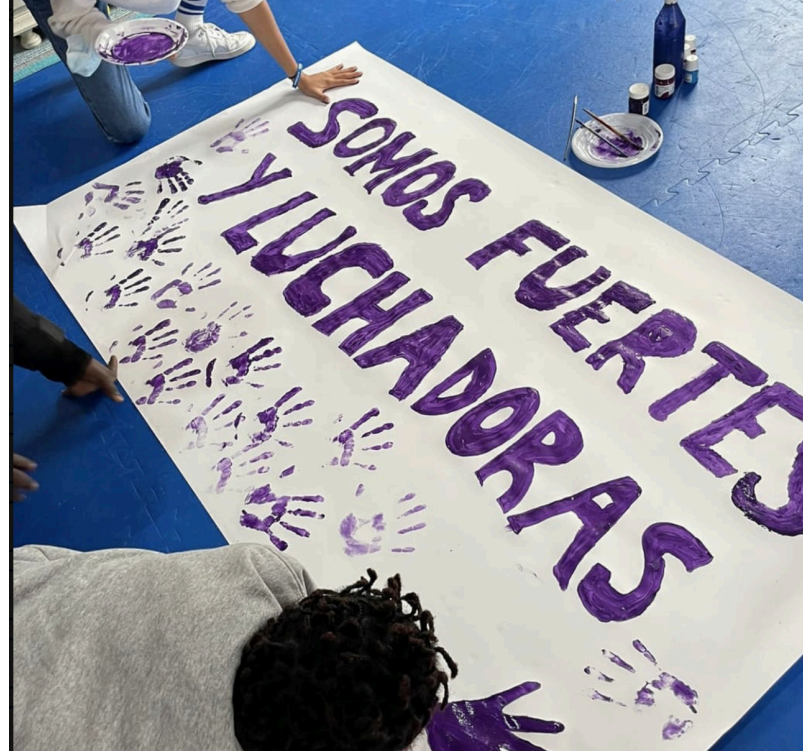 SOMOS FUERTES
Y LUCHADORAS